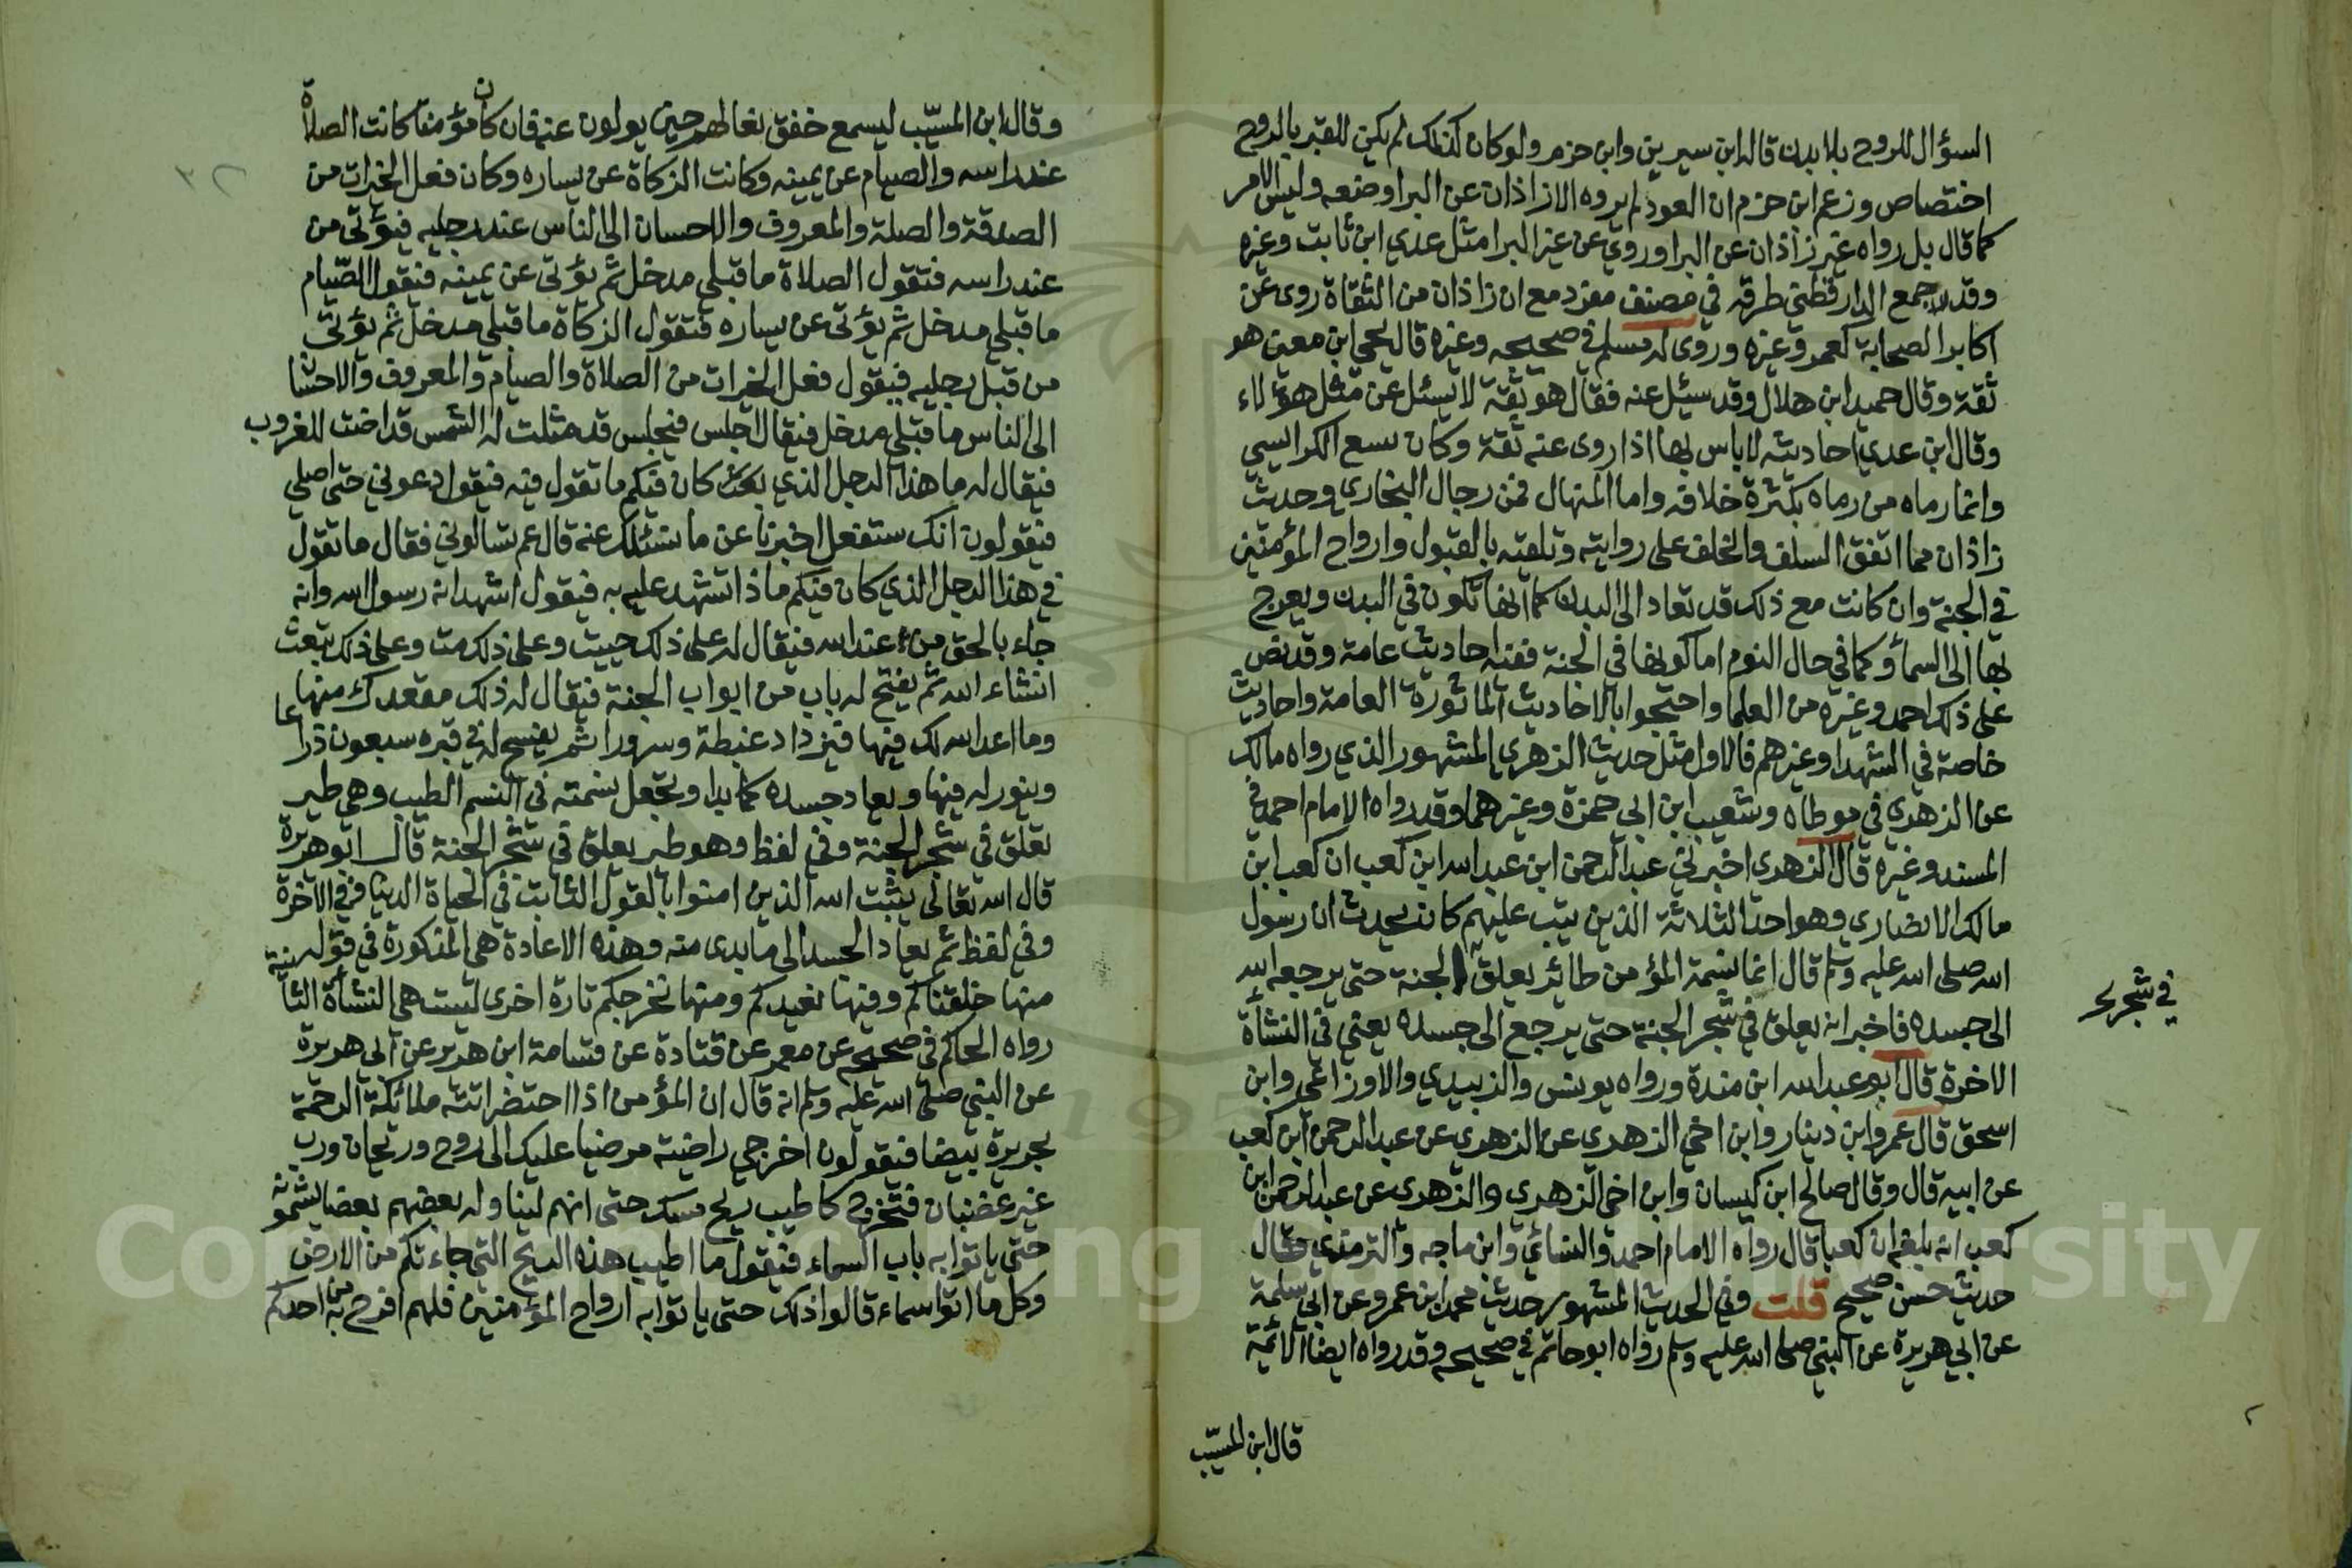 السؤال للروح بلا بدن قاله ابن سيرين وابن حزم ولو كان كذلك لم يكن للقبر بالروح
اختصاص وزعم ابن حزم ان العود لم يروه الا زاذان عن البرا وضعفه وليس الامر
كما قال بل رواه غير زاذان عن البرا وروي عن غير البرا مثل عدي ابن ثابت وغيره
وقد جمع الدارقطني طرقه في مصنف مفرد مع ان زاذان من الثقاة روى عن
اكابر الصحابة كعمر وغيره وروى له مسلم في صحيحه وغيره قال يحيى ابن معين هو
ثقة وقال حميد ابن هلال وقد سيل عنه فقال هو ثقة لا يسئل عن مثل هؤلاء
وقال ابن عدي احاديثه لا باس بها اذا روى عنه ثقة وكان يبيع الكرابيسي
وانما رماه من رماه بكثرة خلافه واما المنهال فمن رجال البخاري وحديث
زاذان مما اتفق السلف والخلف على روايته وتلقته بالقبول وارواح المؤمنين
في الجنة وان كانت مع ذلك قد تعاد الى البدن كما انها تكون في البدن ويعرج
بها الى السماء وكما في حال النوم اما كونها في الجنة ففيه احاديث عامة وقد نص
على ذلك احمد وغيره من العلما واحتجوا بالاحاديث الماثورة العامة واحاديث
خاصة في الشهدا وغيرهم فالاول مثل حديث الزهري المشهور الذي رواه مالك
عن الزهري في موطاه وشعيب ابن ابي حمزة وغيرهما وقد رواه الامام احمد في
المسند وغيره قال الزهري اخبرني عبد الرحمن ابن عبد الله ابن كعب ان كعب ابن
مالك الانصاري وهو احد الثلاثة الذين تيب عليهم كان يحدث ان رسول
الله صلى الله عليه وسلم قال انما نسمة المؤمن طائر يعلق الجنة حتى يرجعه الله
في شجر
الى جسده فاخبر انه يعلق في شجر الجنة حتى يرجع الى جسده يعني في النشأة
الاخرة قال ابو عبد الله ابن مندة ورواه يونس والزبيدي والاوزاعي وابن
اسحق قال عمرو ابن دينار وابن اخي الزهري عن الزهري عن عبد الرحمن ابن كعب
عن ابيه قال وقال صالح ابن كيسان وابن اخي الزهري والزهري عن عبد الرحمن ابن
كعب انه بلغه ان كعبا قال رواه الامام احمد والنسائي وابن ماجه والترمذي وقال
حديث حسن صحيح قلت وفي الحديث المشهور حديث محمد ابن عمرو عن ابي سلمة
عن ابي هريرة عن النبي صلى الله عليه وسلم رواه ابو حاتم في صحيحه وقد رواه ايضا الائمة
قال ابن المسيّب
وقال ابن المسيّب ليسمع خفق نعالهم حين يولون عنه فان كان مؤمنا كانت الصلاة
عند راسه والصيام عن يمينه وكانت الزكاة عن يساره وكان فعل الخيرات من
الصدقة والصلة والمعروف والاحسان الى الناس عند رجليه فيؤتى من
عند راسه فتقول الصلاة ما قبلي مدخل ثم يؤتى عن يمينه فيقول الصّيام
ما قبلي مدخل ثم يؤتى عن يساره فتقول الزكاة ما قبلي مدخل ثم يؤتى
من قبل رجليه فيقول فعل الخيرات من الصلاة والصيام والمعروف والاحسا
الى الناس ما قبلي مدخل فيقال اجلس فيجلس قد مثلت له الشمس قد اضت للغروب
فيقال له ما هذا الرجل الذي كان فيكم ما تقول فيه فيقول دعوني حتى اصلي
فيقولون انك ستفعل اخبرنا عن ما نسئلك عنه قال عم تسالوني فقال ما تقول
في هذا الرجل الذي كان فيكم ماذا تشهد عليه به فيقول اشهد انه رسول الله وانه
جاء بالحق من عند الله فيقال له على ذلك حييت وعلى ذلك مت وعلى ذلك تبعث
انشاء الله ثم يفتح له باب من ابواب الجنة فيقال له ذلك مقعدك منها
وما اعد الله لك فيها فيزداد غبطة وسرورا ثم يفسح له في قبره سبعون ذراعا
وينور له فيها ويعاد جسده كما بدا وتجعل نسمته في النسم الطيب وهي طير
تعلق في شجر الجنة وفي لفظ وهو طير يعلق في شجر الجنة قال ابو هريرة
قال الله تعالى يثبت الله الذين امنوا بالقول الثابت في الحياة الدنيا وفي الاخرة
وفي لفظ ثم يعاد الجسد الى ما بدى منه وهذه الاعادة هي المذكورة في قوله
منها خلقناكم وفيها نعيدكم ومنها نخرجكم تارة اخرى ليست هي النشأة الثانية
رواه الحاكم في صحيحه عن معمر عن قتادة عن قسامة ابن هرير عن ابي هريرة
عن النبي صلى الله عليه وسلم انه قال ان المؤمن اذا احتضر اتته ملائكة الرحمة
بحريرة بيضا فيقولون اخرجي راضية مرضيا عليك الى روح وريحان ورب
غير غضبان فتخرج كاطيب ريح مسك حتى انهم ليناوله بعضهم بعضا يشمونه
حتى ياتوا به باب السماء فيقول ما اطيب هذه الريح التي جاءتكم من الارض
وكل ما اتوا سماء قالوا ذلك حتى ياتوا به ارواح المؤمنين فلهم افرح به من احدكم